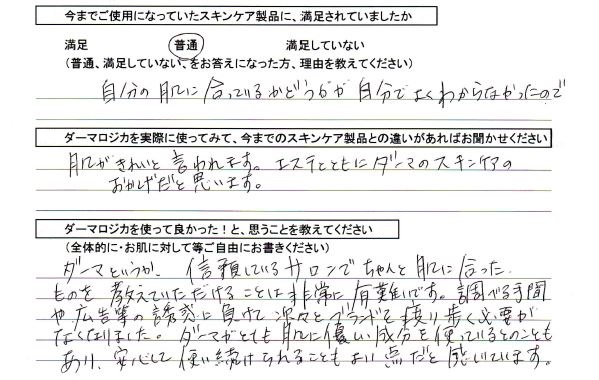 今までご使用になっていたスキンケア製品に、満足されていましたか
満足 普通 満足していない
(普通、満足していない、をお答えになった方、理由を教えてください)
自分の肌に合っているかどうかが自分でよくわからなかったので
ダーマロジカを実際に使ってみて、今までのスキンケア製品との違いがあればお聞かせください
肌がきれいと言われます。エステとともにダーマのスキンケアの
おかげだと思います。
ダーマロジカを使って良かった!と、思うことを教えてください
(全体的に・お肌に対して等ご自由にお書きください)
ダーマというか、信頼しているサロンでちゃんと肌に合った
ものを教えていただけることは非常に有難いです。調べる手間
や広告等の誘惑に負けて次々とブランドを積り歩く必要が
なくなりました。ダーマがとても肌に優しい成分を使っているとのことも
あり、安心して使い続けられることもよい点だと感じています。